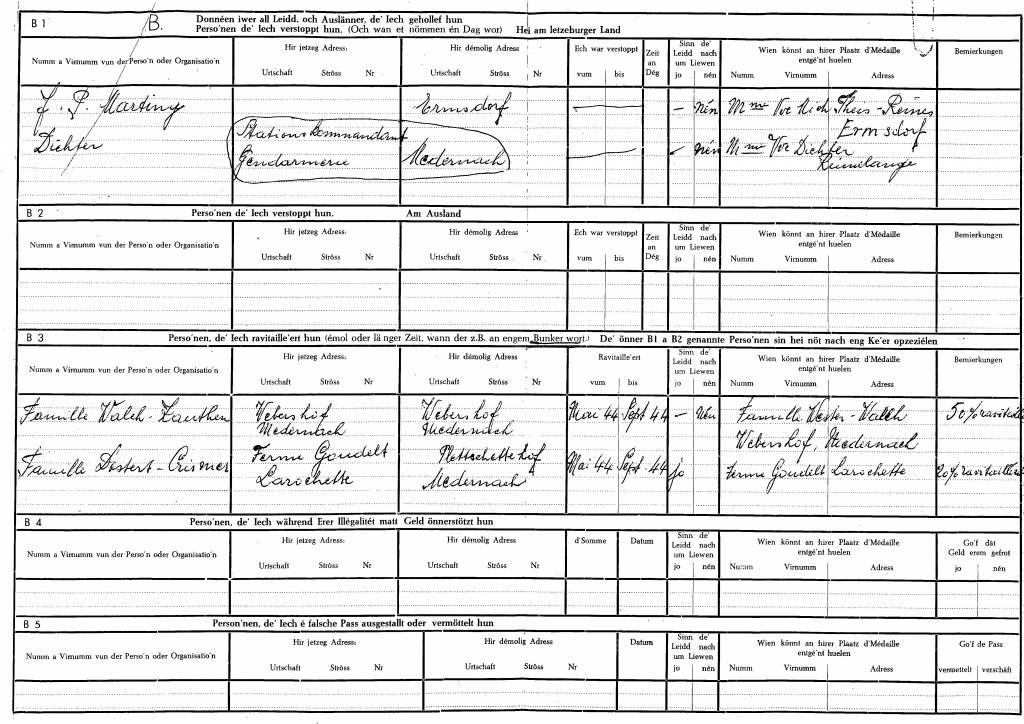 B 1
B.
Donnéen iwer all Leidd, och Auslänner, de' Iech gehollef hun
Perso'nen de' Iech verstoppt hun. (Och wan et nömmen én Dag wor) Hei am letzeburger Land
Numm a Virnumm vun der Perso'n oder Organisatio'n
Hir jetzeg Adress:
Urtschaft Ströss Nr
Hir démolig Adress:
Urtschaft Ströss Nr
Ech war verstoppt
vum bis
Zeit an Dég
Sinn de' Leidd nach um Liewen
jo nén
Wien könnt an hirer Plaatz d'Médaille entgé'nt huelen
Numm Virnumm Adress
Bemierkungen
J. P. Martiny Ermsdorf — nén Mme Vve Nich Theis-Reines
Ermsdorf
Dichter Stationskommandant
Gendarmerie Medernach nén Mme Vve Dichter
Rumelange
B 2
Perso'nen de' Iech verstoppt hun. Am Ausland
Numm a Virnumm vun der Perso'n oder Organisatio'n
Hir jetzeg Adress:
Urtschaft Ströss Nr
Hir démolig Adress:
Urtschaft Ströss Nr
Ech war verstoppt
vum bis
Zeit an Dég
Sinn de' Leidd nach um Liewen
jo nén
Wien könnt an hirer Plaatz d'Médaille entgé'nt huelen
Numm Virnumm Adress
Bemierkungen
B 3
Perso'nen, de' Iech ravitaille'ert hun (émol oder lä nger Zeit, wann der z.B. an engem Bunker wort.) De' önner B1 a B2 genannte Perso'nen sin hei nöt nach eng Ke'er opzeziélen
Numm a Virnumm vun der Perso'n oder Organisatio'n
Hir jetzeg Adress:
Urtschaft Ströss Nr
Hir démolig Adress:
Urtschaft Ströss Nr
Ravitaille'ert
vum bis
Sinn de' Leidd nach um Liewen
jo nén
Wien könnt an hirer Plaatz d'Médaille entgé'nt huelen
Numm Virnumm Adress
Bemierkungen
Famille Walch-Kauthen Webershof Webershof Mai 44 Sept 44 — nén Famille Wester-Walch 50% ravitaillé
Medernach Medernach Webershof, Medernach
Famille Destert-Crismer Ferme Goudelt Plettschettehof Mai 44 Sept. 44 jo Ferme Goudelt Larochette 20% ravitaillé
Larochette Medernach
B 4
Perso'nen, de' Iech während Erer Illégalitét matt Geld önnerstötzt hun
Numm a Virnumm vun der Perso'n oder Organisatio'n
Hir jetzeg Adress:
Urtschaft Ströss Nr
Hir démolig Adress:
Urtschaft Ströss Nr
d'Somme
Datum
Sinn de' Leidd nach um Liewen
jo nén
Wien könnt an hirer Plaatz d'Médaille entgé'nt huelen
Numm Virnumm Adress
Go'f dât Geld erem gefrot
jo nén
B 5
Person'nen, de' Iech é falsche Pass ausgestallt oder vermöttelt hun
Numm a Virnumm vun der Perso'n oder Organisatio'n
Hir jetzeg Adress:
Urtschaft Ströss Nr
Hir démolig Adress:
Urtschaft Ströss Nr
Datum
Sinn de' Leidd nach um Liewen
jo nén
Wien könnt an hirer Plaatz d'Médaille entgé'nt huelen
Numm Virnumm Adress
Go'f de Pass
vermettelt verschäft